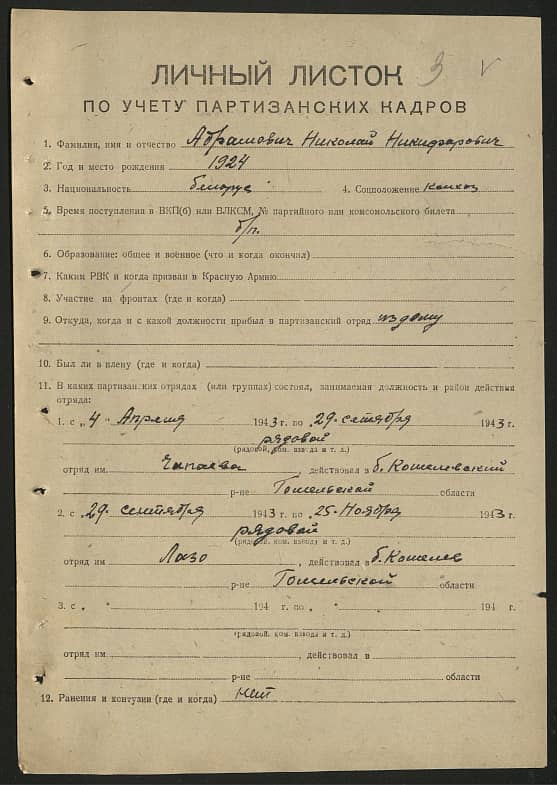 ЛИЧНЫЙ ЛИСТОК 3 V
ПО УЧЕТУ ПАРТИЗАНСКИХ КАДРОВ
1. Фамилия, имя и отчество Абрамович Николай Никифорович
2. Год и место рождения 1924
3. Национальность белорус 4. Соцположение колхоз
5. Время поступления в ВКП(б) или ВЛКСМ, № партийного или комсомольского билета
б/п.
6. Образование: общее и военное (что и когда окончил)
7. Каким РВК и когда призван в Красную Армию
8. Участие на фронтах (где и когда)
9. Откуда, когда и с какой должности прибыл в партизанский отряд из дому
10. Был ли в плену (где и когда)
11. В каких партизанских отрядах (или группах) состоял, занимаемая должность и район действия
отряда:
1. с „4" Апреля 1943 г. по 29. сентября 1943 г.
рядовой
(рядовой, ком. взвода и т. д.)
отряд им. Чапаева, действовал в б. Кошелевский
р-не Гомельской области
2. с „29. сентября 1943 г. по 25. Ноября 1943
рядовой
(рядовой, ком. взвода и т. д.)
отряд им Лазо, действовал в б. Кошелев
р-не Гомельской области
3. с „ " 194 г. по „ " 194 г.
(рядовой, ком. взвода и т. д.)
отряд им. , действовал в
р-не области
12. Ранения и контузии (где и когда) нет